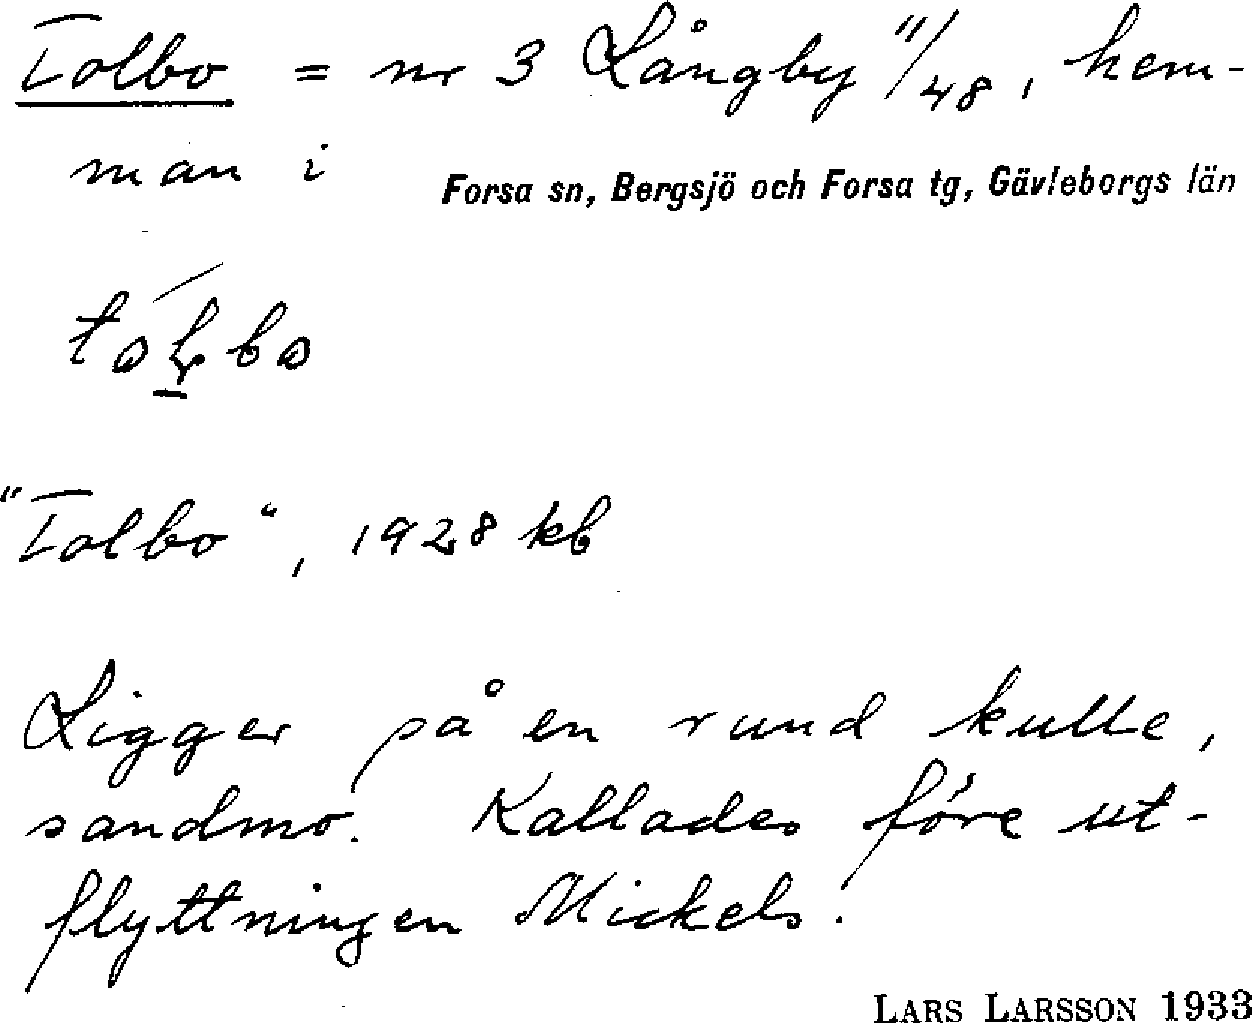 Tolbo = nr 3 Långby 11/48, hem-
man i Forsa sn, Bergsjö och Forsa tg, Gävleborgs län
"Tolbo", 1928 kb
Ligger på en rund kulle,
sandmo. Kallades före ut-
flyttningen Mickels.
LARS LARSSON 1933